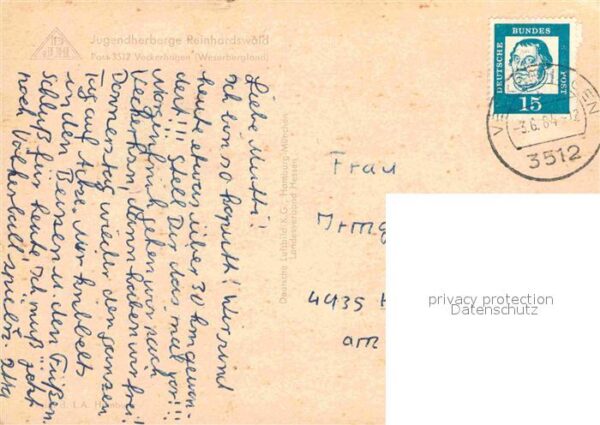 Jugendherberge Reinhardswald
Post 3512 Veckerhagen (Weserbergland)
Liebe Mutti!
Ich bin so kaputt! Wir sind
heute etwas über 30 km gewan-
dert!!! Stell Dir das mal vor!!!
Morgen früh gehen wir nach
Veckerhagen, dann haben wir frei!
Donnerstag wieder den ganzen
Tag auf Achse. Mir kribbelt's
in den Beinen u. den Füßen.
Schluß für heute! Ich muß jetzt
noch Völkerball spielen.
Deutsche Luftbild K.G. Hamburg-München
Landesverband Hessen
DEUTSCHE BUNDESPOST
15
-3.6.64-
3512
Frau
Irmg
4935
am
privacy protection
Datenschutz